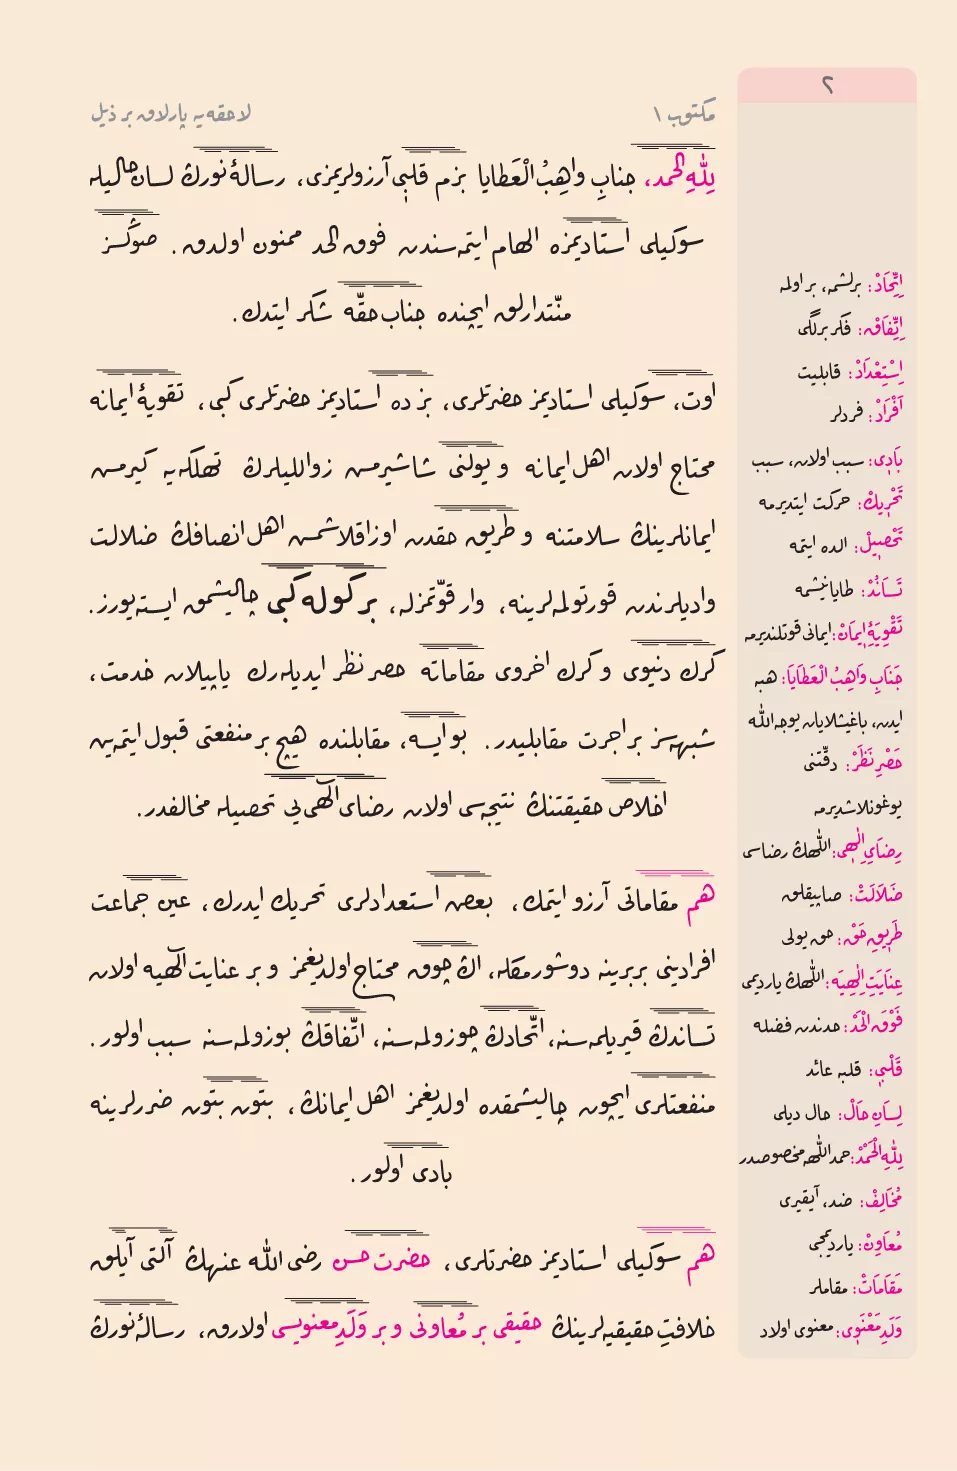 ٢
مكتوب ١
لاحقه‌يه پارلاق بر ذيل
لِلّٰهِ الْحَمد، جنابِ واهِبُ الْعَطايا بزم قلبى آرزولريمزى، رسالۀ نورڭ لسانِ حاليله
سوكيلى استاديمزه الهام ايتمه‌سندن فوق الحد ممنون اولدق. صوڭسز
منّتدارلق ايچنده جناب حقّه شكر ايتدك.
اوت، سوكيلى استاديمز حضرتلرى، بز ده استاديمز حضرتلرى كبى، تقويۀ ايمانه
محتاج اولان اهل ايمانه و يولنى شاشيرمش زواللیلرڭ تهلكه‌يه گيرمش
ايمانلرينڭ سلامتنه و طريق حقدن اوزاقلاشمش اهل انصافڭ ضلالت
واديلرندن قورتولمه‌لرينه، وار قوّتمزله، بر كوله كبى چاليشمق ايسته‌يورز.
گرك دنيوى و گرك اخروى مقاماته حصر نظر ايديله‌رك ياپيلان خدمت،
شبهه‌سز بر اجرت مقابليدر. بو ايسه، مقابلنده هيچ بر منفعتى قبول ايتمه‌ين
اخلاص حقيقتنڭ نتيجه‌سى اولان رضاى الٰهى‌يى تحصيله مخالفدر.
هم مقاماتى آرزو ايتمك، بعض استعدادلرى تحريك ايدرك، عين جماعت
افرادينى بربرينه دوشورمكله، اڭ چوق محتاج اولديغمز و بر عنايت الٰهيه اولان
تساندڭ قيريلمه‌سنه، اتّحادڭ چوزولمه‌سنه، اتّفاقڭ بوزولمه‌سنه سبب اولور.
منفعتلرى ايچون چاليشمقده اولديغمز اهل ايمانڭ، بتون بتون ضررلرينه
بادى اولور.
هم سوكيلى استاديمز حضرتلرى، حضرت حسن رضى اللّٰه عنهڭ آلتى آيلق
خلافتِ حقيقيه‌لرينڭ حقيقى بر مُعاونى و بر وَلَدِ معنويسى اولارق، رسالۀ نورڭ
اِتِّحَادْ: برلشمه، بر اولمه
اِتِّفَاقْ: فكر برلگى
اِسْتِعْدَادْ: قابليت
اَفْرَادْ: فردلر
بَادِى: سبب اولان، سبب
تَحْرِيكْ: حركت ايتديرمه
تَحْصِيلْ: الده ايتمه
تَسَانُدْ: طايانيشمه
تَقْوِيَۀِ اِيمَانْ: ايمانى قوتلنديرمه
جَنَابِ وَاهِبُ الْعَطَايَا: هبه
ايدن، باغيشلايان يوجه اللّٰه
حَصْرِ نَظَرْ: دقّتنى
يوغونلاشديرمه
رِضَاىِ اِلٰهِى: اللّٰهڭ رضاسى
ضَلَالَتْ: صاپيقلق
طَرِيقِ حَقْ: حق يولى
عِنَايَتِ اِلٰهِيَه: اللّٰهڭ يارديمى
فَوْقَ الْحَدْ: حددن فضله
قَلْبِى: قلبه عائد
لِسَانِ حَالْ: حال ديلى
لِلّٰهِ الْحَمْدْ: حمد اللّٰهه مخصوصدر
مُخَالِفْ: ضد، آيقيرى
مُعَاوِنْ: يارديمجى
مَقَامَاتْ: مقاملر
وَلَدِ مَعْنَوِى: معنوى اولاد